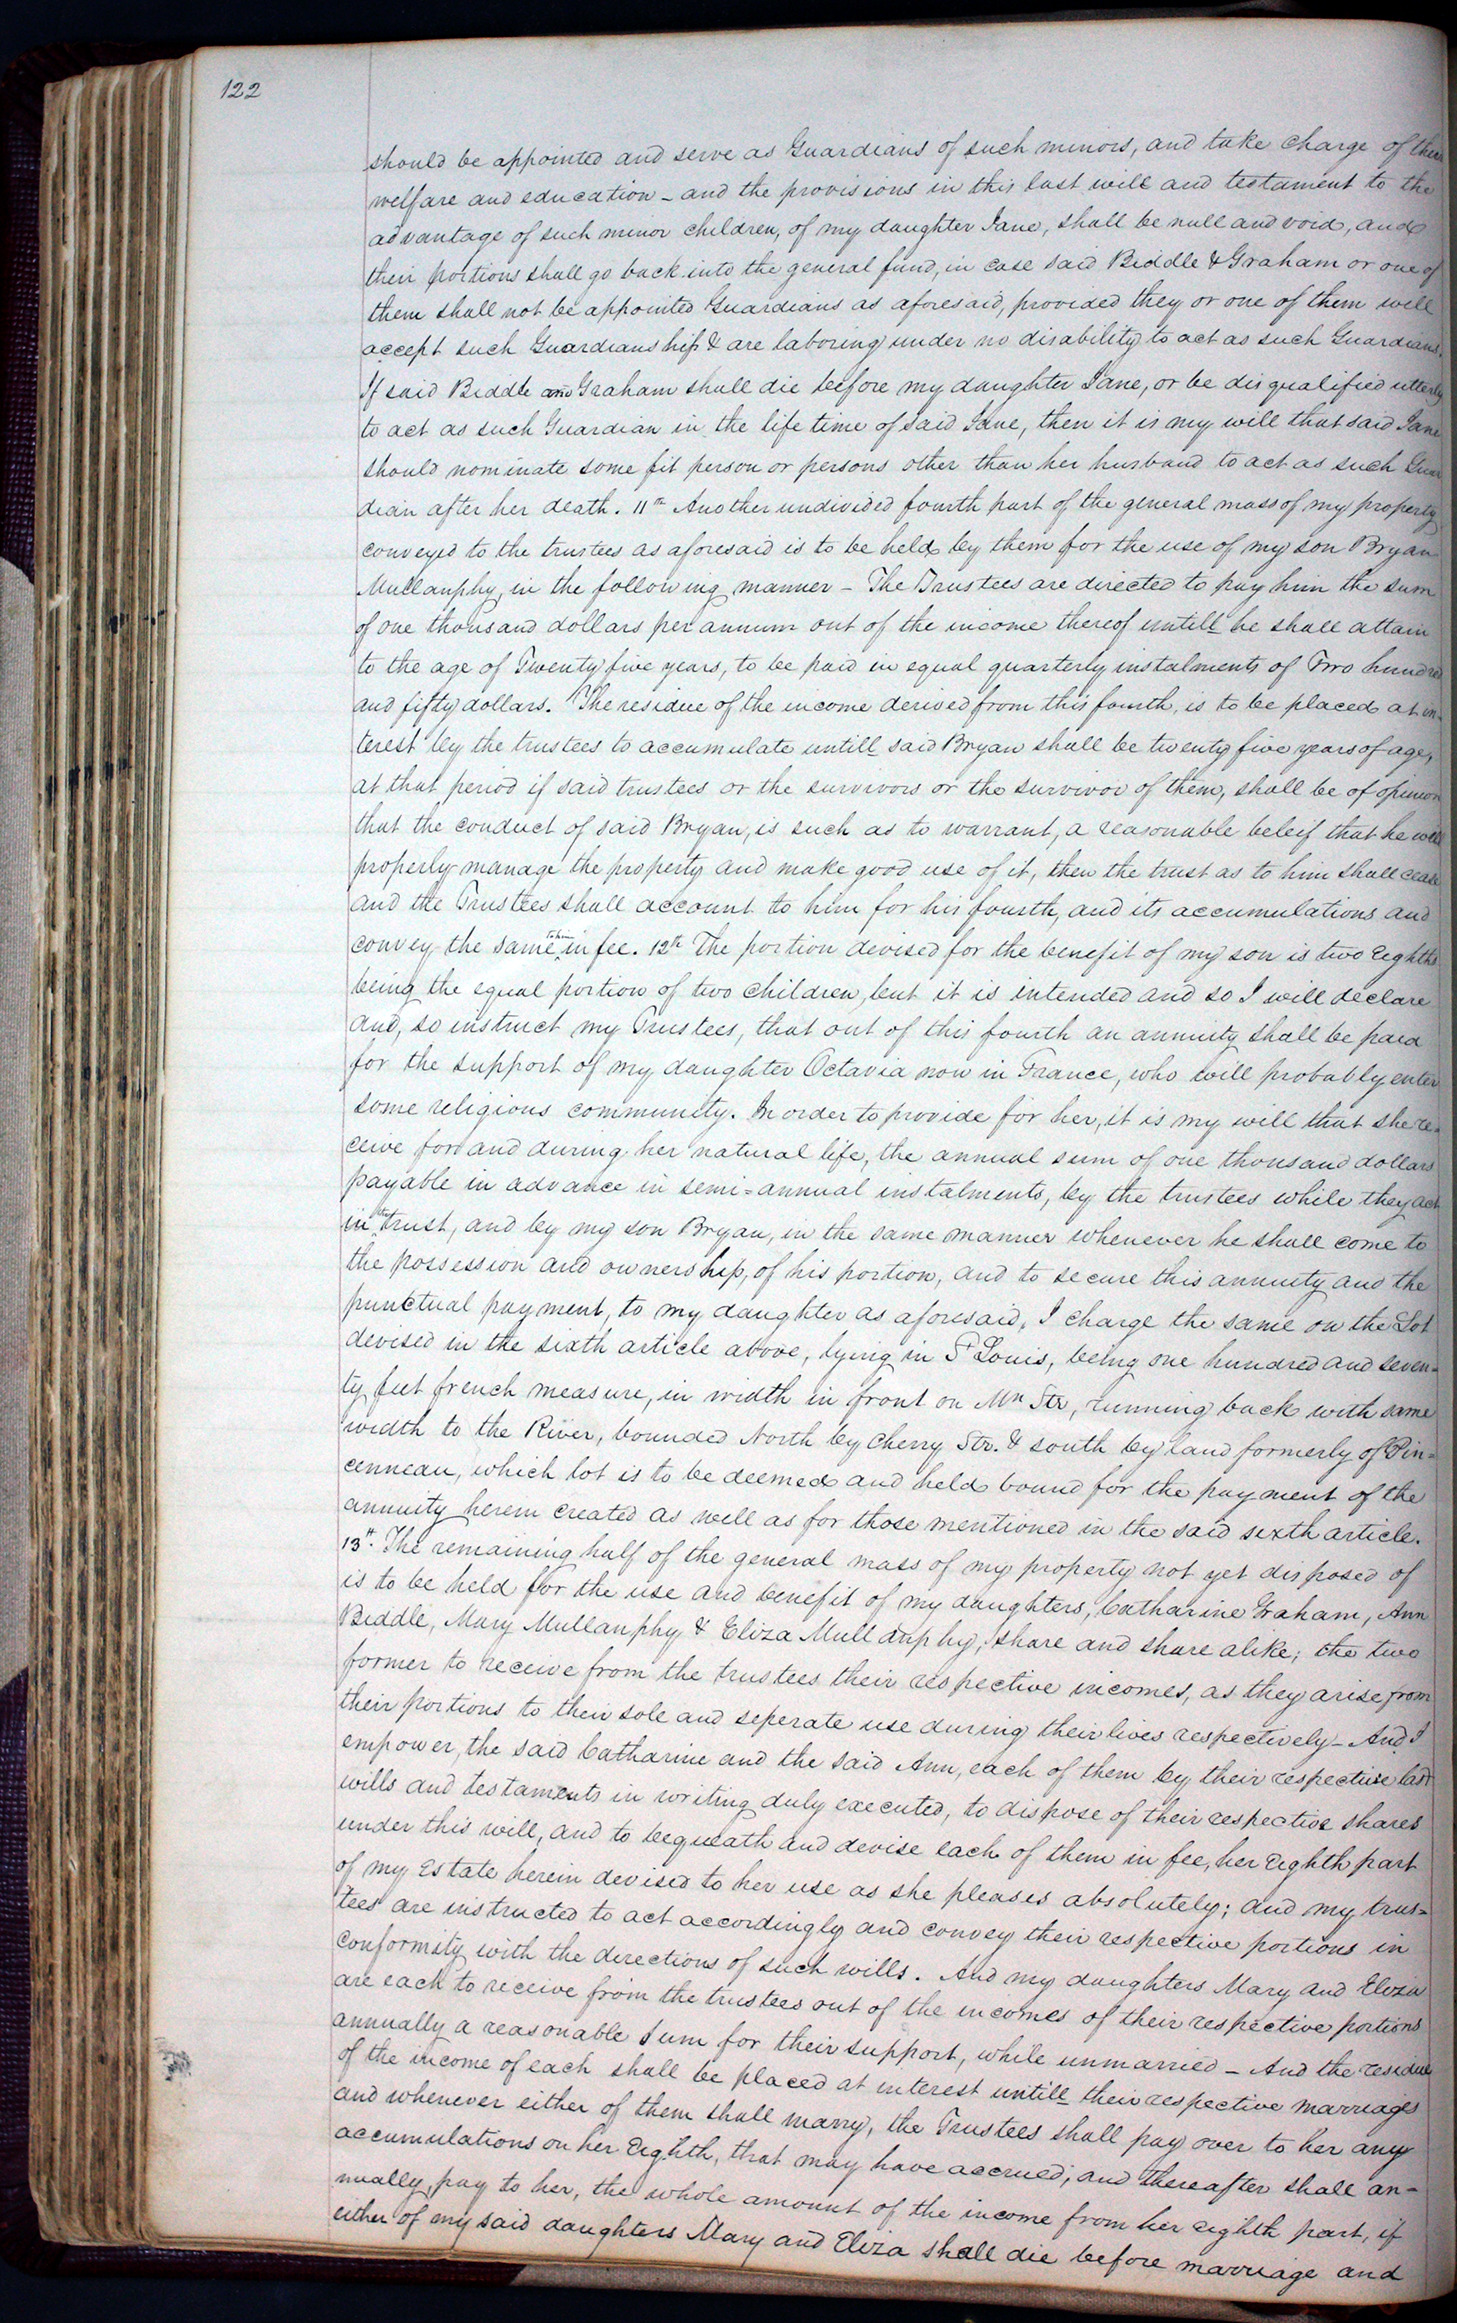 122
should be appointed and serve as Guardians of such minors, and take charge of their
welfare and education - and the provisions in this last will and testament to the
advantage of such minor children, of my daughter Jane, shall be null and void, and
their portions shall go back into the general fund, in case said Biddle & Graham or one of
them shall not be appointed Guardians as aforesaid, provided they or one of them will
accept such Guardianship & are laboring under no disability to act as such Guardians.
If said Biddle and Graham shall die before my daughter Jane, or be disqualified utterly
to act as such Guardian in the life time of said Jane, then it is my will that said Jane
should nominate some fit person or persons other than her husband to act as such Guar
dian after her death. 11th Another undivided fourth part of the general mass of my property
conveyed to the trustees as aforesaid is to be held by them for the use of my son Bryan
Mullanphy, in the following manner - The Trustees are directed to pay him the sum
of one thousand dollars per annum out of the income thereof untill he shall attain
to the age of Twenty five years, to be paid in equal quarterly instalments of Two hundred
and fifty dollars. The residue of the income derived from this fourth, is to be placed at in-
terest by the trustees to accumulate untill said Bryan shall be twenty five years of age,
at that period if said trustees or the survivors or the survivor of them, shall be of opinion
that the conduct of said Bryan, is such as to warrant, a reasonable beleif that he will
properly manage the property and make good use of it, then the trust as to him shall cease
and the Trustees shall account to him for his fourth, and its accumulations and
convey the same to him in fee. 12th The portion devised for the benefit of my son is two Eighths
being the equal portion of two children, but it is intended and so I will declare
and, so instruct my Trustees, that out of this fourth an annuity shall be paid
for the support of my daughter Octavia now in France, who will probably enter
some religious community. In order to provide for her, it is my will that she re-
ceive for and during her natural life, the annual sum of one thousand dollars
payable in advance in semi=annual instalments, by the trustees while they act
in the trust, and by my son Bryan, in the same manner whenever he shall come to
the possession and ownership, of his portion, and to secure this annuity and the
punctual payment, to my daughter as aforesaid, I charge the same on the Lot
devised in the sixth article above, lying in St Louis, being one hundred and seven-
ty feet french measure, in width in front on Mn Str, running back with same
width to the River, bounded North by Cherry Str. & south by land formerly of Pin=
conneau, which lot is to be deemed and held bound for the payment of the
annuity herein created as well as for those mentioned in the said sixth article.
13th. The remaining half of the general mass of my property not yet disposed of
is to be held for the use and benefit of my daughters, Catharine Graham, Ann
Biddle, Mary Mullanphy & Eliza Mullanphy, share and share alike; the two
former to receive from the trustees their respective incomes, as they arise from
their portions to their sole and seperate use during their lives respectively - And I
empower, the said Catharine and the said Ann, each of them by their respective last
wills and testaments in writing duly executed, to dispose of their respective shares
under this will, and to bequeath and devise each of them in fee, her Eighth part
of my Estate herein devised to her use as she pleases absolutely; and my trus=
tees are instructed to act accordingly and convey their respective portions in
conformity with the directions of such wills. And my daughters Mary and Eliza
are each to receive from the trustees out of the incomes of their respective portions
annually a reasonable sum for their support, while unmarried - And the residue
of the income of each shall be placed at interest untill their respective marriages
and whenever either of them shall marry, the Trustees shall pay over to her any
accumulations on her Eighth, that may have accrued; and thereafter shall an-
nually, pay to her, the whole amount of the income from her eighth part, if
either of my said daughters Mary and Eliza shall die before marriage and